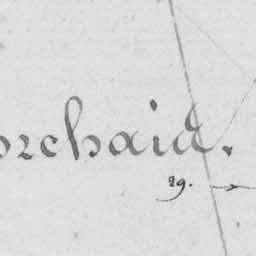 orchaid.
29.